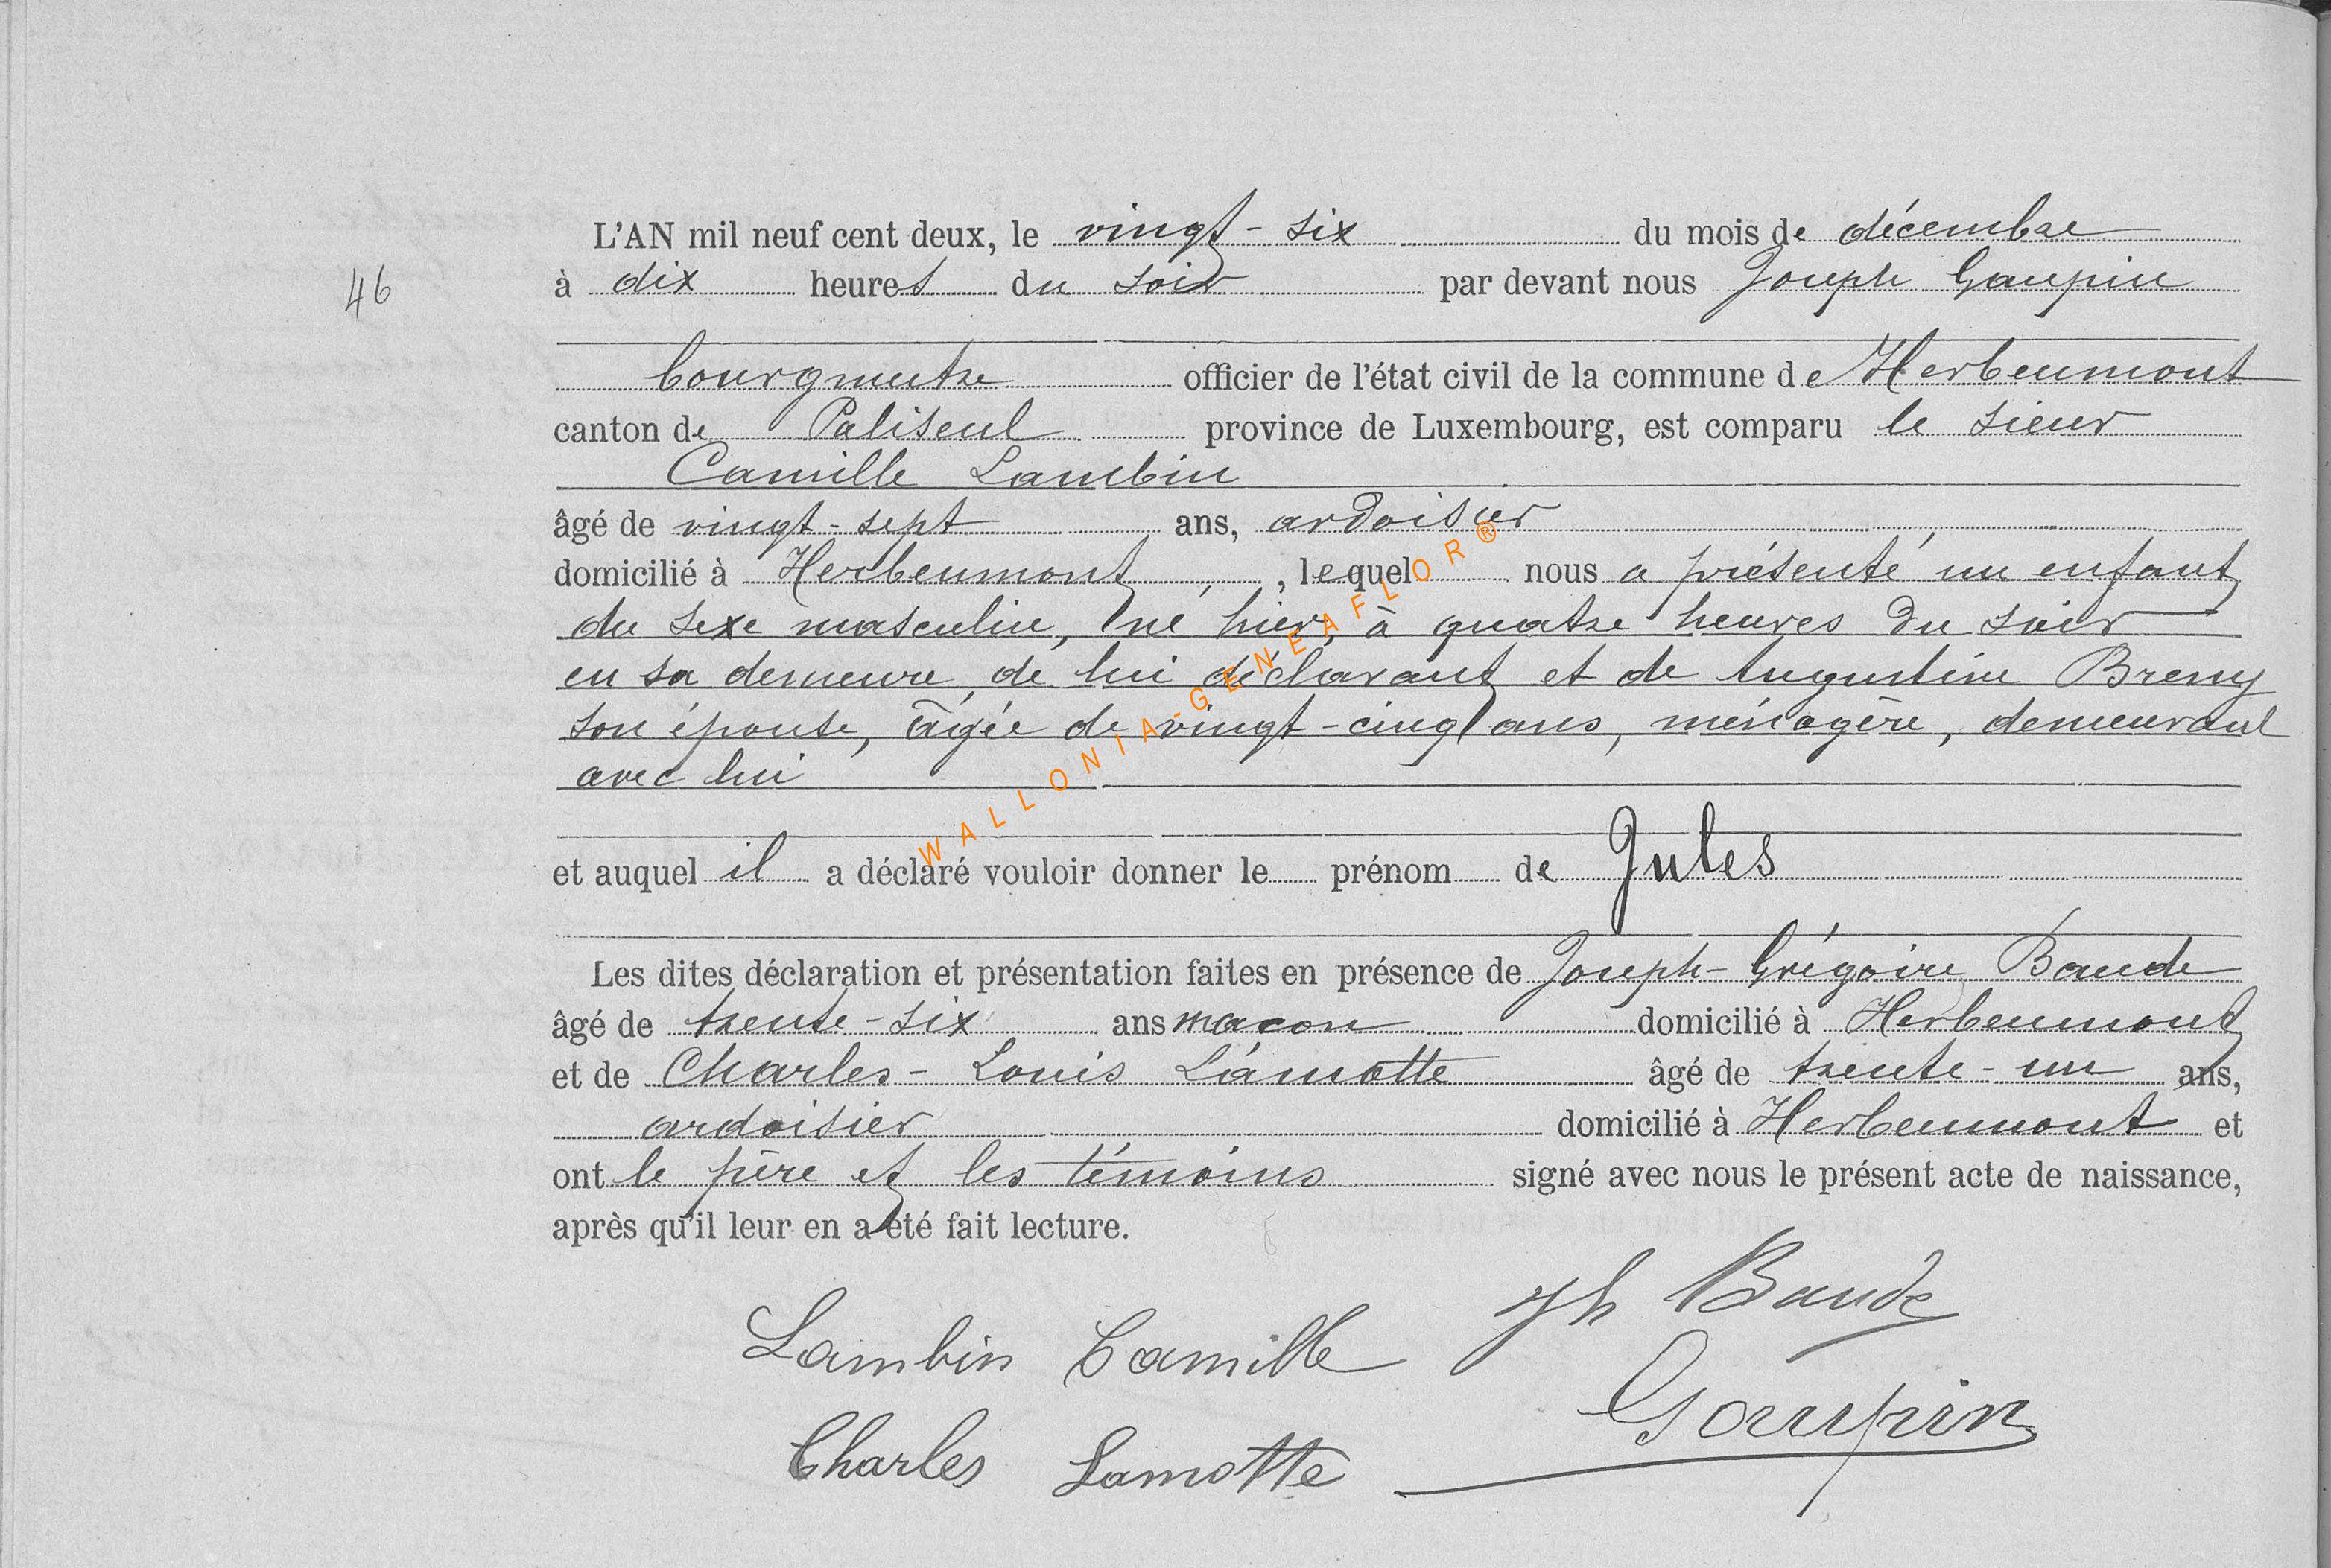 L'AN mil neuf cent deux, le vingt-six du mois de décembre
46
à dix heures du soir par devant nous Joseph Gaupin
bourgmestre officier de l'état civil de la commune de Herbeumont
canton de Paliseul province de Luxembourg, est comparu le sieur
Camille Lambin
âgé de vingt-sept ans, ardoisier
domicilié à Herbeumont, lequel nous a présenté un enfant
du sexe masculin, né hier, à quatre heures du soir
en sa demeure, de lui déclarant et de Augustine Bremy
son épouse, âgée de vingt-cinq ans, ménagère, demeurant
avec lui
et auquel il a déclaré vouloir donner le prénom de Jules
Les dites déclaration et présentation faites en présence de Joseph-Grégoire Baude
âgé de trente-six ans maçon domicilié à Herbeumont
et de Charles-Louis Lamotte âgé de trente-un ans,
ardoisier domicilié à Herbeumont et
ont le père et les témoins signé avec nous le présent acte de naissance,
après qu'il leur en a été fait lecture.
Jh Baude
Lambin Camille
Gaupin
Charles Lamotte
WALLONIA-GENEAFLOR®